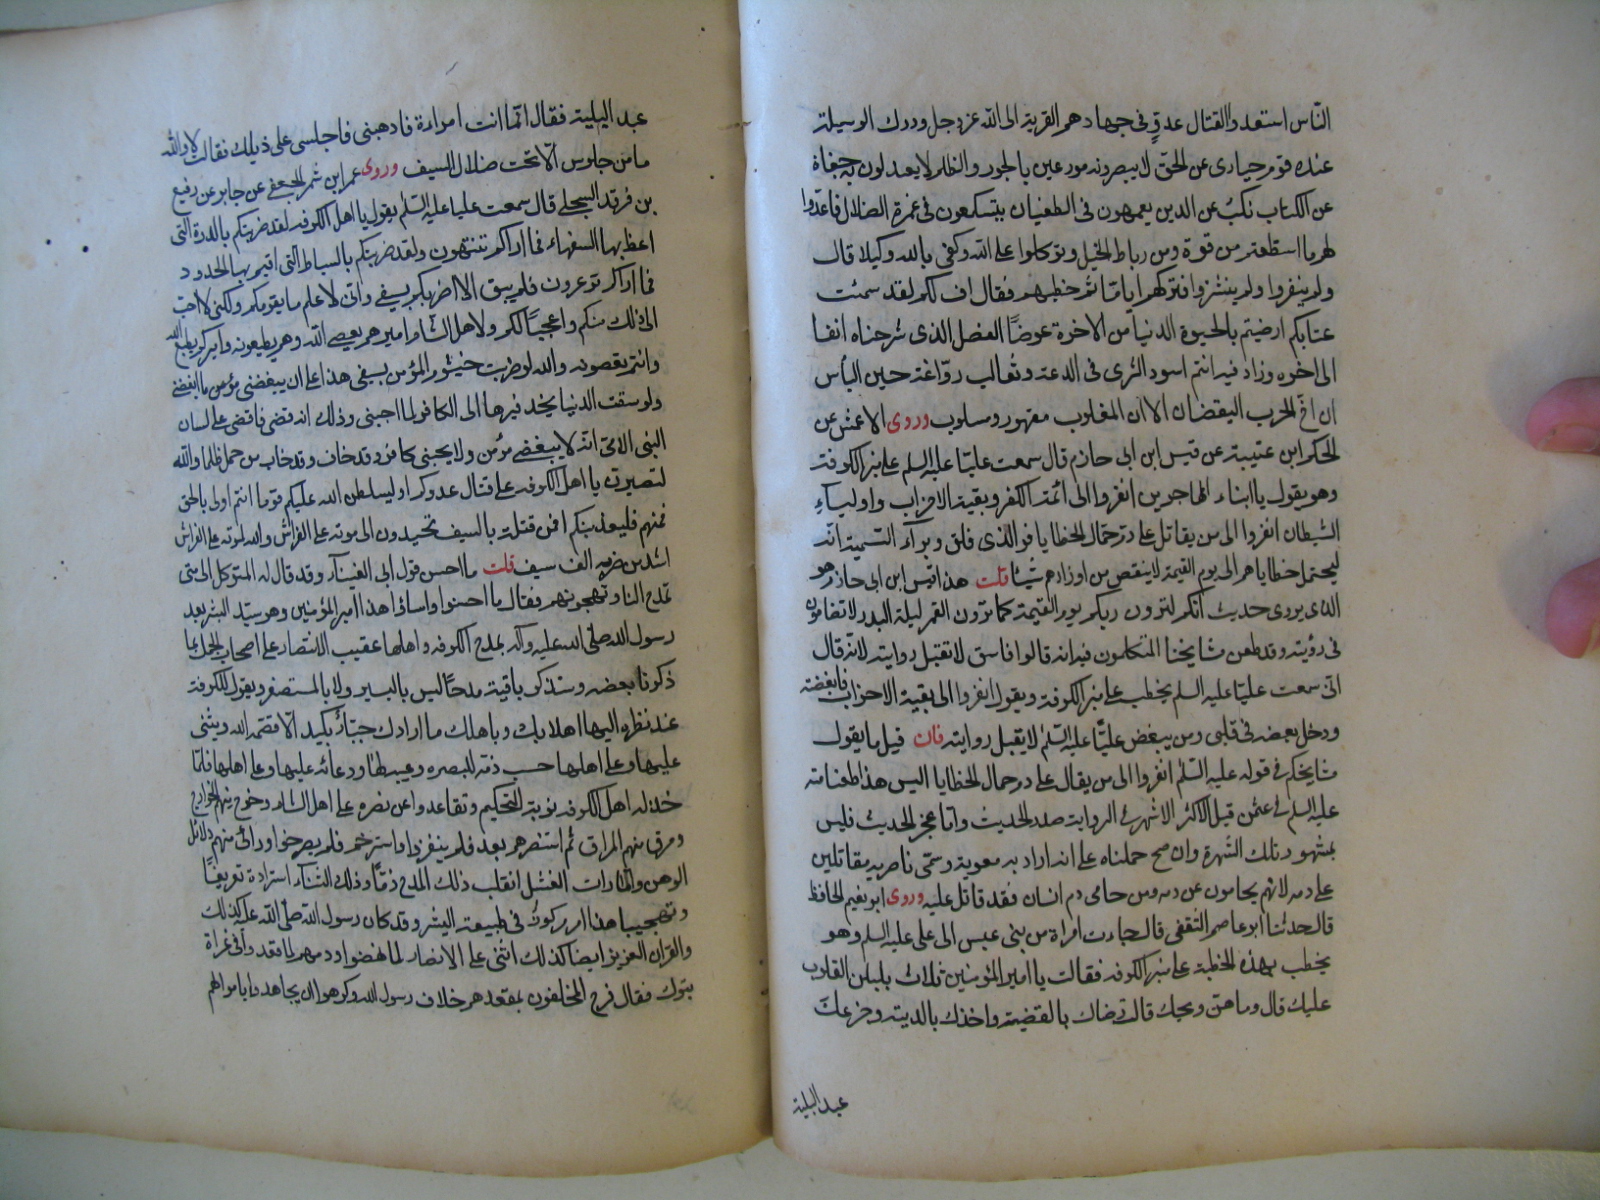 الناس استعدوا لقتال عدو في جهادهم القربة الى الله عز وجل ودرك الوسيلة
عنده قوم حيارى عن الحق لا يبصرونه موزعين بالجور والظلم لا يعدلون به جفاة
عن الكتاب نكب عن الدين يعمهون في الطغيان يتسكعون في غمرة الضلال فاعدوا
لهم ما استطعتم من قوة ومن رباط الخيل وتوكلوا على الله وكفى بالله وكيلا قال
ولم ينفروا ولم ينشزوا فتركهم اياما ثم خطبهم فقال اف لكم لقد سمئت
عتابكم ارضيتم بالحيوة الدنيا من الاخرة عوضا الفصل الذي شرحناه انفا
الى اخره وزاد فيه انتم اسود الشرى في الدعة وثعالب رواغة حين الباس
ان اخ الحرب اليقضان الا ان المغلوب مقهور ومسلوب وروى الاعمش عن
الحكم ابن عتيبة عن قيس ابن ابي حازم قال سمعت عليا عليه السلم على منبر الكوفة
وهو يقول يا ابناء المهاجرين انفروا الى ائمة الكفر وبقية الاحزاب واولياء
الشيطان انفروا الى من يقاتل على دم حمال الخطايا فوالذي فلق وبرآء النسمة انه
ليحتمل خطاياهم الى يوم القيمة لا ينقص من اوزارهم شيئا قلت هذا قيس ابن ابي حازم هو
الذي يروى حديث انكم لترون ربكم يوم القيمة كما ترون القمر ليلة البدر لا تضامون
في رؤيته وقد طعن مشايخنا المتكلمون فيه انه قالوا فاسق لا تقبل روايته لانه قال
اني سمعت عليا عليه السلم يخطب على منبر الكوفة ويقول انفروا الى بقية الاحزاب فابغضته
ودخل بعضه في قلبي ومن يبغض عليا عليه السلم لا يقبل روايته فان قيل ما يقول
مشايخكم في قوله عليه السلم انفروا الى من يقاتل على دم حمال الخطايا اليس هذا طعنا منه
عليه السلم في عثمن قيل الاكثر الاشهر في الرواية صدر الحديث واما عجز الحديث فليس
بمشهور تلك الشهرة وان صح حملناه على انه اراد به معوية وسمى ناصريه مقاتلين
على دمه لانهم يحامون عن دمه ومن حامى دم انسان فقد قاتل عليه وروى ابو نعيم الحافظ
قال حدثنا ابو عاصم الثقفي قال جاءت امراة من بني عبس الى علي عليه السلم وهو
يخطب بهذه الخطبة على منبر الكوفه فقالت يا امير المؤمنين ثلاث بلبلن القلوب
عليك قال وما هن ويحك قالت رضاك بالقضية واخذك بالدية وجزعك
عند البلية
عند البلية فقال انما انت امراءة فاذهبي فاجلسي على ذيلك فقالت لا والله
ما من جلوس الا تحت ضلال السيف وروى عمر ابن شمر الجعفي عن جابر عن رفيع
بن فرقد البجلي قال سمعت عليا عليه السلم يقول يا اهل الكوفه لقد ضربتكم بالدرة التي
اعظ بها السفهاء فما اراكم تنتهون ولقد ضربتكم بالسياط التي اقيم بها الحدود
فما اراكم ترعوون فلم يبق الا اضربكم بسيفي واني لا علم ما يقومكم ولكني لا احب
الى ذلك منكم واعجبا لكم ولاهل الشام اميرهم يعصي الله وهم يطيعونه واميركم يطيع الله
وانتم تعصونه والله لو ضربت خيشوم المؤمن بسيفي هذا على ان يبغضني مؤمن ما ابغضني
ولو سقت الدنيا بحذافيرها الى الكافر لما احبني وذلك انه قضى فاقضى على لسان
النبي الامي انه لا يبغضني مؤمن ولا يحبني كافر وقد خاب من حمل ظلما والله
لتصبرن يا اهل الكوفه على قتال عدوكم او ليسلطن الله عليكم قوما انتم اولى بالحق
منهم فليعذبنكم افمن قتلة بالسيف تحيدون الى موتة على الفراش والله لموتة على الفراش
اشد من ضربة الف سيف قلت ما احسن قول ابي العيناء وقد قال له المتوكل الى متى
تمدح الناس وتهجوهم فقال ما احسنوا واساؤا هذا امير المؤمنين وهو سيد البشر بعد
رسول الله صلى الله عليه وآله يمدح الكوفه واهلها عقيب الانتصار على اصحاب الجمل بما
ذكرنا بعضه وسنذكر باقيه مدحا ليس باليسير ولا بالمستصغر ويقول للكوفة
عند نظره اليها اهلا بك وباهلك ما ارادك جبار بكيد الا قصمه الله ويثني
عليها وعلى اهلها حسب ذمه للبصره وعيبه لها ودعائه عليها وعلى اهلها فلما
خذله اهل الكوفه نوبة التحكيم وتقاعدوا عن نصره على اهل الشام وخرج منهم الخوارج
ومرق منهم المراق ثم استنفرهم بعد فلم ينفروا واستصرخهم فلم يصرخوا وراى منهم دلائل
الوهن وامارات الفشل انقلب ذلك المدح ذما وذلك الثناء استزادة تعريفا
وتهجينا هذا امر مركوز في طبيعة البشر وقد كان رسول الله صلى الله عليه كذلك
والقران العزيز ايضا كذلك اثنى على الانصار لما نهضوا وذمهم لما قعدوا في غزاة
تبوك فقال فرح المخلفون بمقعدهم خلاف رسول الله وكرهوا ان يجاهدوا باموالهم